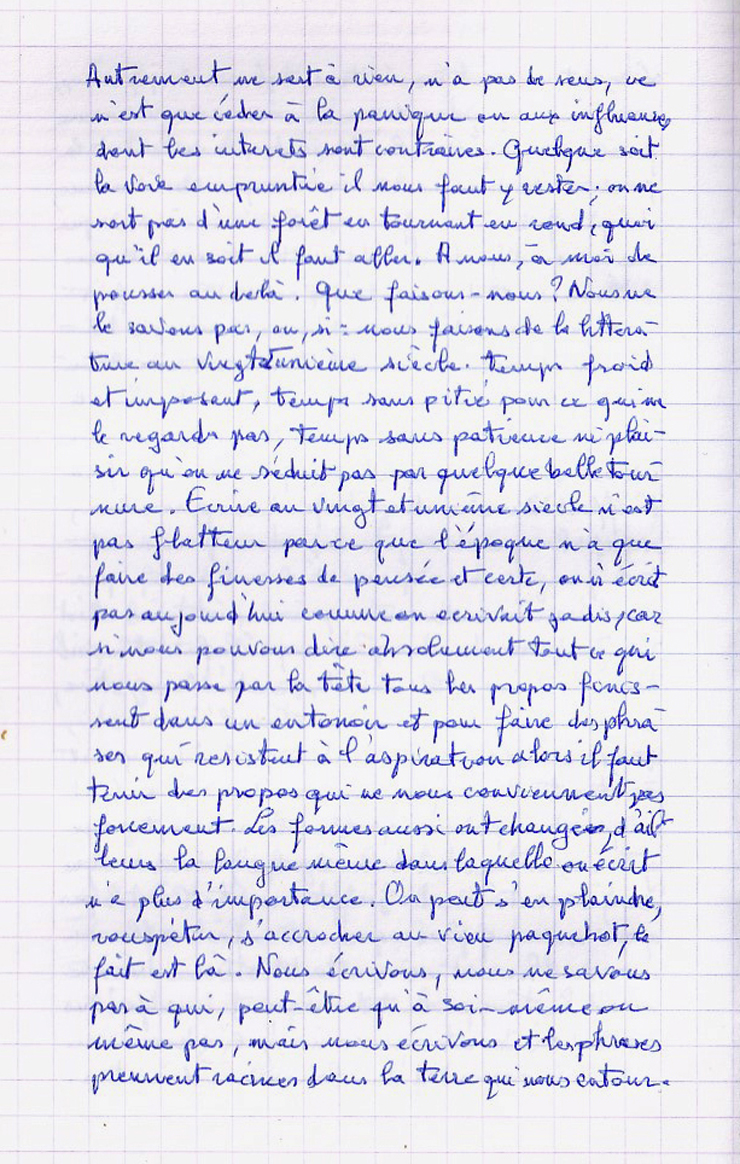 Autrement ne sert à rien, n'a pas de sens, ce
n'est que céder à la panique ou aux influences
dont les interets sont contraires. Quelque soit
la voie empruntée il nous faut y rester; on ne
sort pas d'une forêt en tournant en rond, quoi
qu'il en soit il faut aller. A nous, à moi de
pousser au delà. Que faisons-nous? Nous ne
le savons pas, ou, si: nous faisons de la littera-
ture au vingt et unième siècle. Temps froid
et imposant, temps sans pitié pour ce qui ne
le regarde pas, temps sans patience ni plai-
sir qu'on ne séduit pas par quelque belle tour
nure. Ecrire au vingt et unième siecle n'est
pas flatteur parce que l'époque n'a que
faire des finesses de pensée et certe, on n'écrit
pas aujourd'hui comme on ecrivait jadis, car
si nous pouvons dire absolument tout ce qui
nous passe par la tête tous les propos finis-
sent dans un entonoir et pour faire des phra-
ses qui resistent à l'aspiration alors il faut
tenir des propos qui ne nous conviennent pas
forcement. Les formes aussi ont changées, d'ail-
leurs la langue même dans laquelle on écrit
n'a plus d'importance. On peut s'en plaindre,
rouspéter, s'accrocher au vieu paquebot, le
fait est là. Nous écrivons, nous ne savons
pas à qui, peut-être qu'à soi-même ou
même pas, mais nous écrivons et les phrases
prennent racines dans la terre qui nous entour.